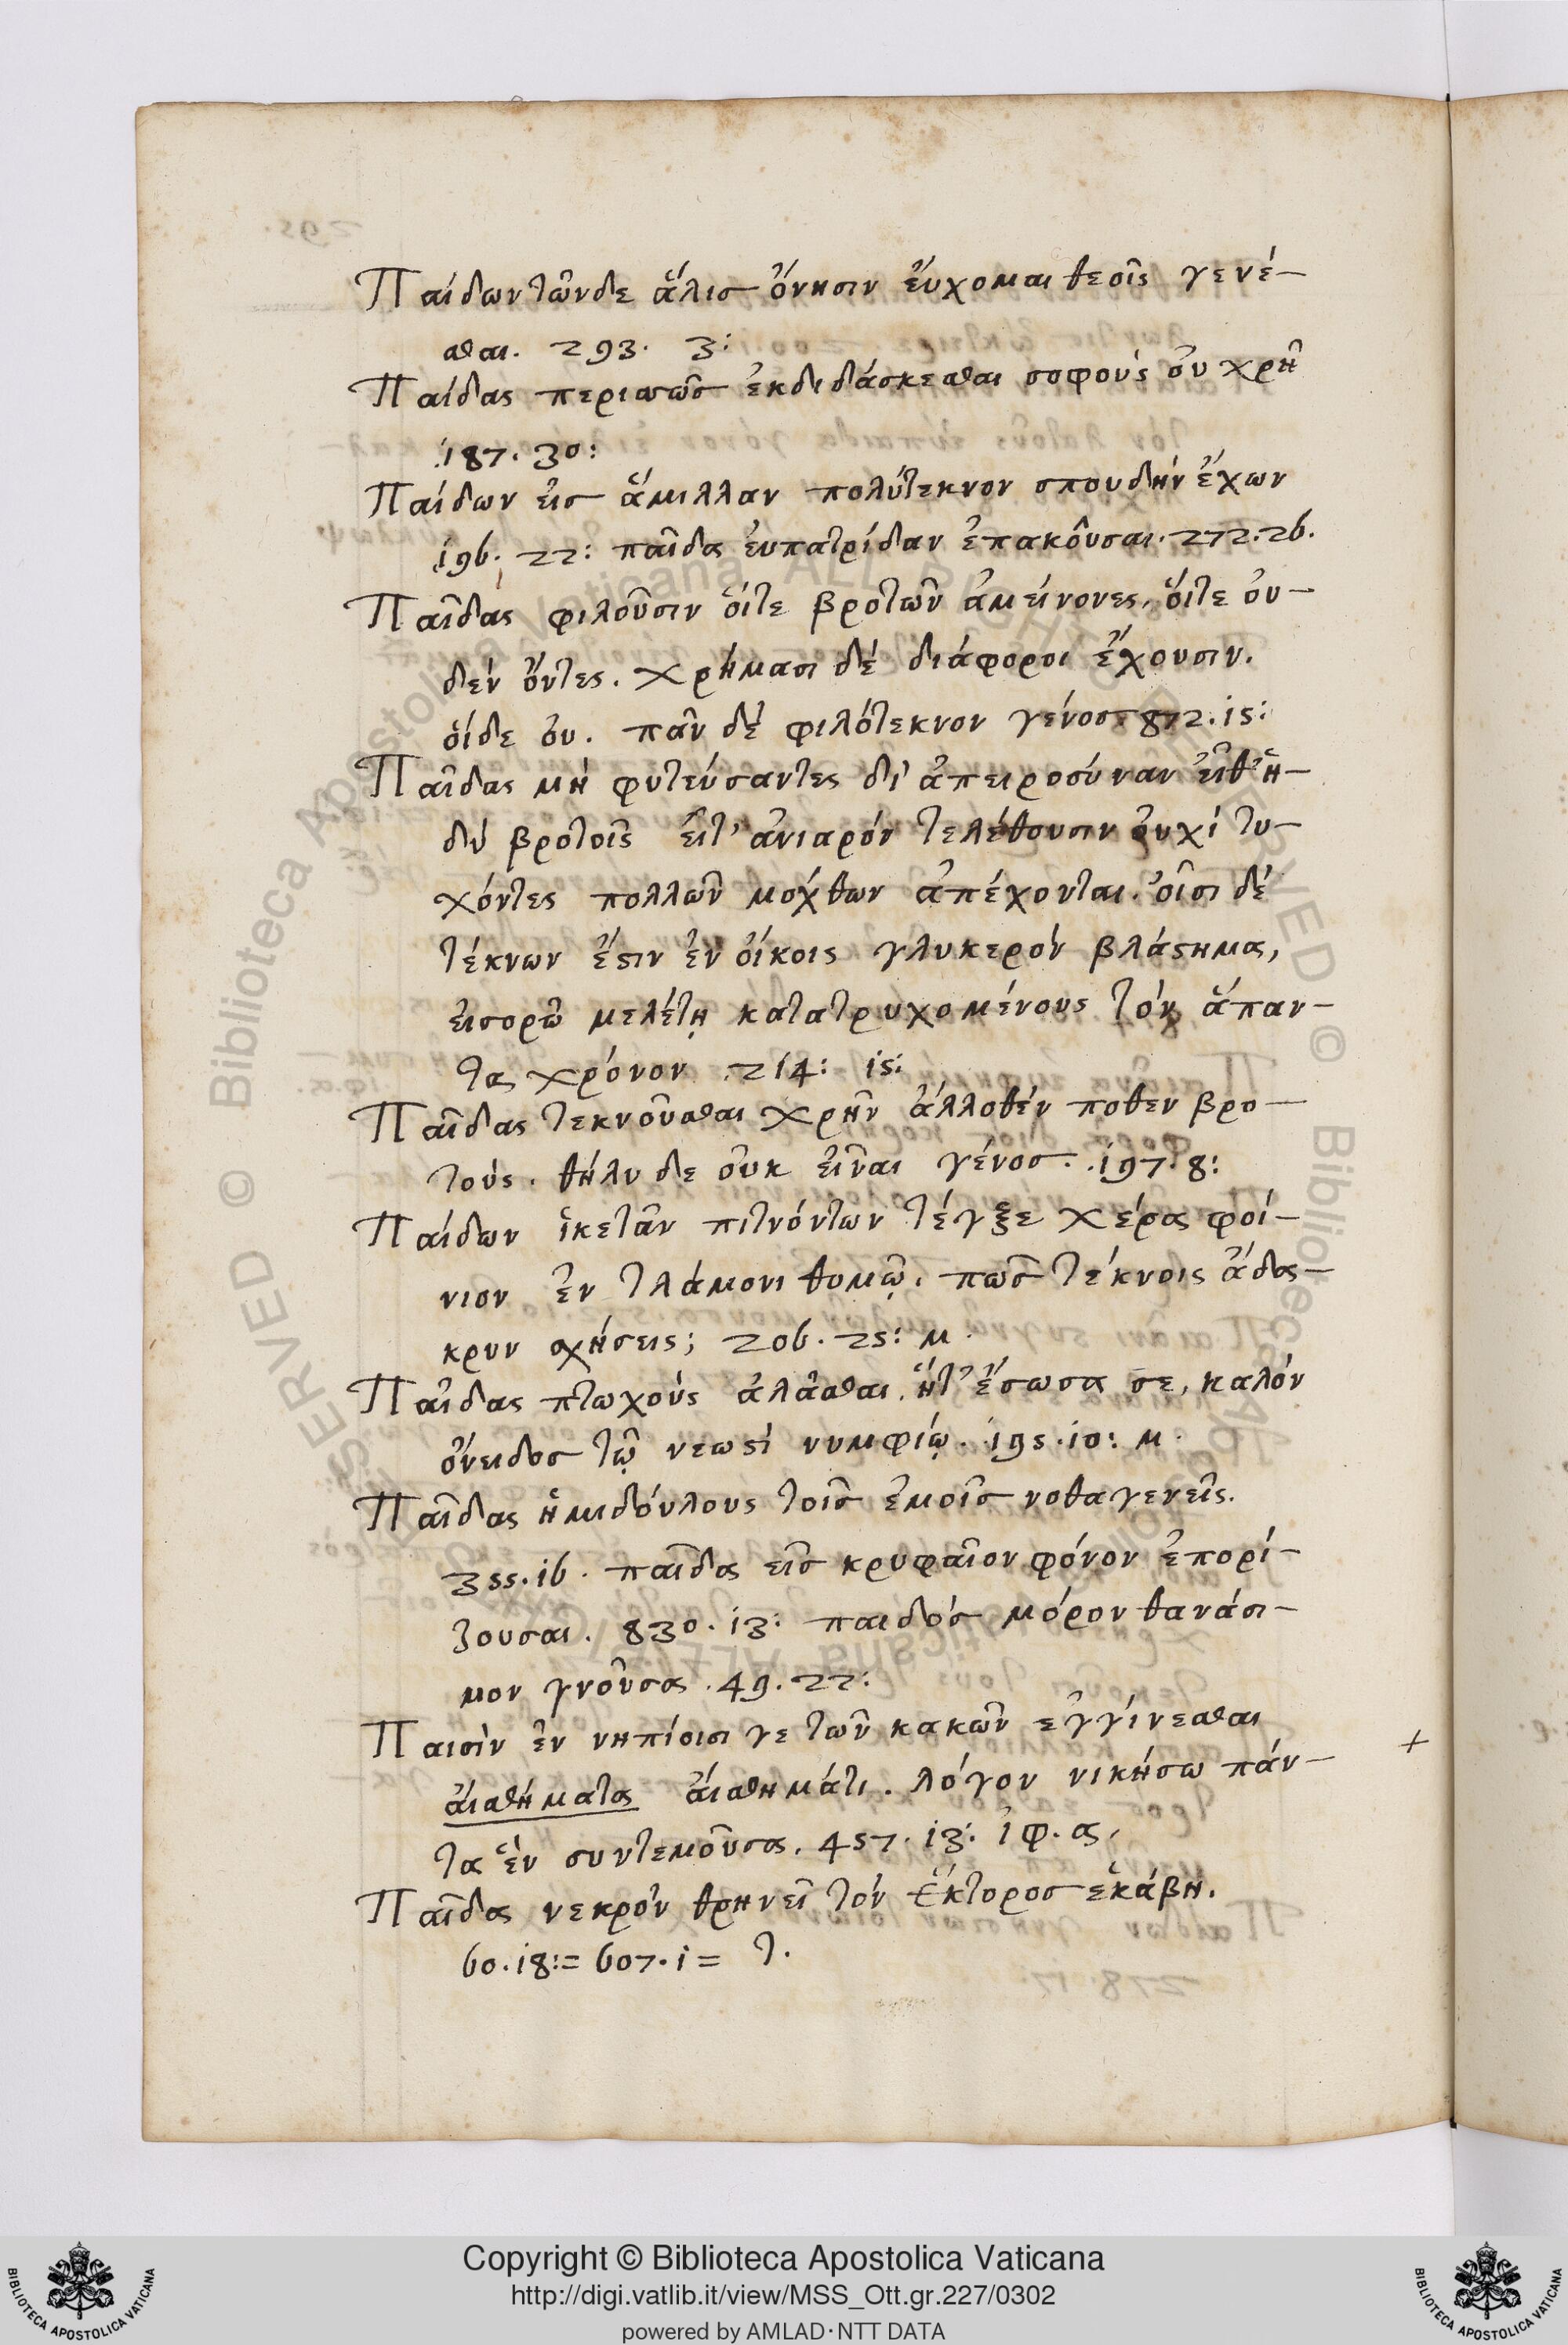 Παίδων τῶνδε ἅλισ ὄνησιν ἔυχομαι θεοῖς γενέ-
σθαι. 293. 3:
Παίδας περισσῶσ ἐκδιδάσκεσθαι σοφοὺς ὀυ χρὴ
187. 30:
Παίδων ἐισ ἅμιλλαν πολύτεκνον σπουδὴν ἔχων
196. 22: παῖδα ἐυπατρίδαν ἐπακοῦσαι. 272. 26.
Παῖδας φιλοῦσιν ὅιτε βροτῶν ἀμείνονες, ὅιτε ὀυ-
δὲν ὄντες. χρήμασι δὲ διάφοροι ἔχουσιν.
ὁίδε ὀυ. πᾶν δὲ φιλότεκνον γένοσ 872. 15:
Παῖδας μὴ φυτεύσαντες δι' ἀπειροσύναν ἔιθ' ἡ-
δὺ βροτοῖς ἔιτ' ἀνιαρὸν τελέθουσιν ὀυχὶ τυ-
χόντες πολλῶν μόχθων ἀπέχονται. ὁῖσι δὲ
τέκνων ἔϛιν ἐν ὀίκοις γλυκερὸν βλάϛημα,
ἐισορῶ μελέτῃ κατατρυχομένους τὸν ἅπαν-
τα χρόνον 214: 15:
Παῖδας τεκνοῦσθαι χρῆν ἄλλοθέν ποθεν βρο-
τοὺς. θῆλυ δε ὀυκ ἐῖναι γένοσ. 197. 8:
Παίδων ἱκετᾶν πιτνόντων τέγξε χέρα φοί-
νιον ἐν τλάμονι θυμῷ. πῶσ τέκνοις ἄδα-
κρυν σχήσεις; 206. 25: μ.
Παῖδας πτωχοὺς ἀλᾶσθαι, ἥτ' ἔσωσα σε, καλὸν
ὄνειδοσ τῷ νεωϛὶ νυμφίῳ. 195. 10: μ.
Παῖδας ἡμιδούλους τοῖσ ἐμοῖσ νοθαγενεῖς.
355. 16. παῖδα εἰσ κρυφαῖον φόνον ἐπορί-
ζουσαι. 830. 13: παιδὸσ μόρον θανάσι-
μον γνοῦσα. 49. 22:
Παισὶν ἐν νηπίοισι γε τῶν κακῶν ἐγγίνεσθαι
ἀισθήματα ἀισθημάτι. λόγον νικήσω πάν- +
τα ἓν συντεμοῦσα. 457. 13: ἰφ. α.
Παῖδα νεκρὸν θρηνεῖ τὸν ἕκτοροσ ἑκάβη.
60. 18:= 607. 1 = τ.
Copyright © Biblioteca Apostolica Vaticana
http://digi.vatlib.it/view/MSS_Ott.gr.227/0302
powered by AMLAD·NTT DATA